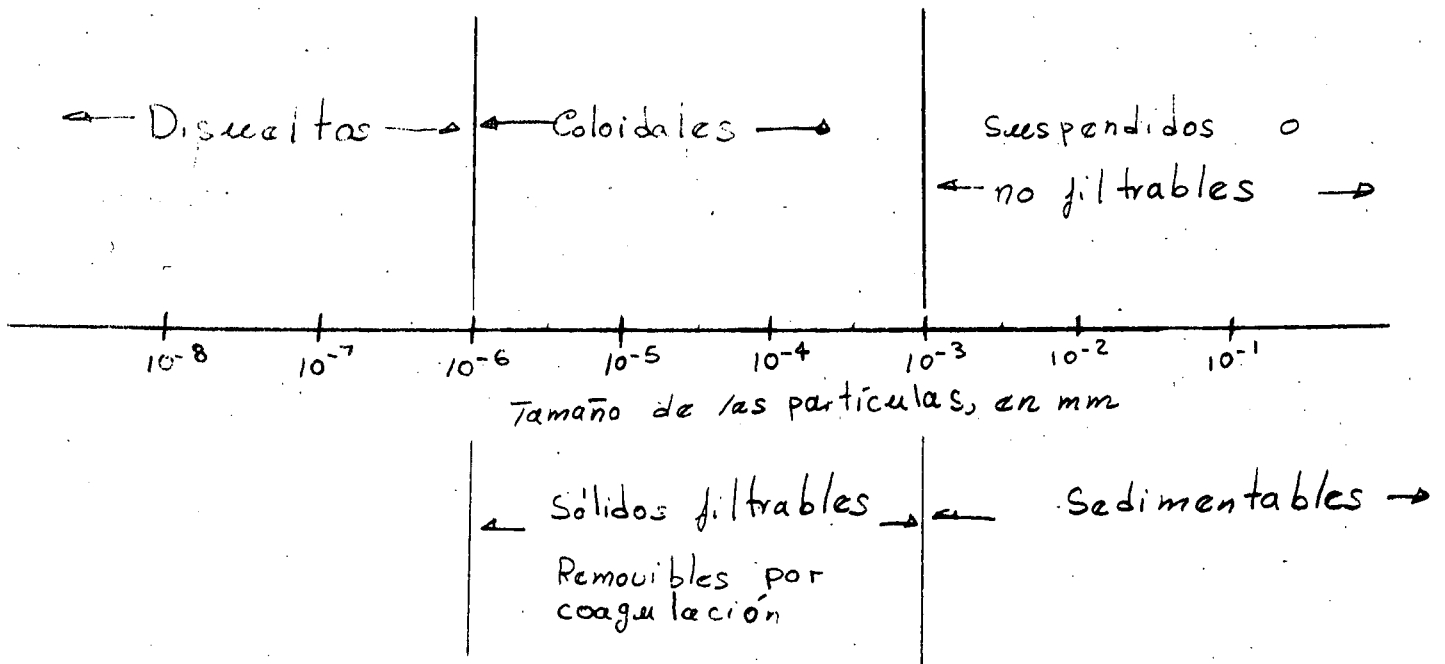 Disueltos
Coloidales
Suspendidos o
no filtrables
10-8 10-7 10-6 10-5 10-4 10-3 10-2 10-1
Tamaño de las partículas, en mm
Sólidos filtrables
Removibles por
coagulación
Sedimentables